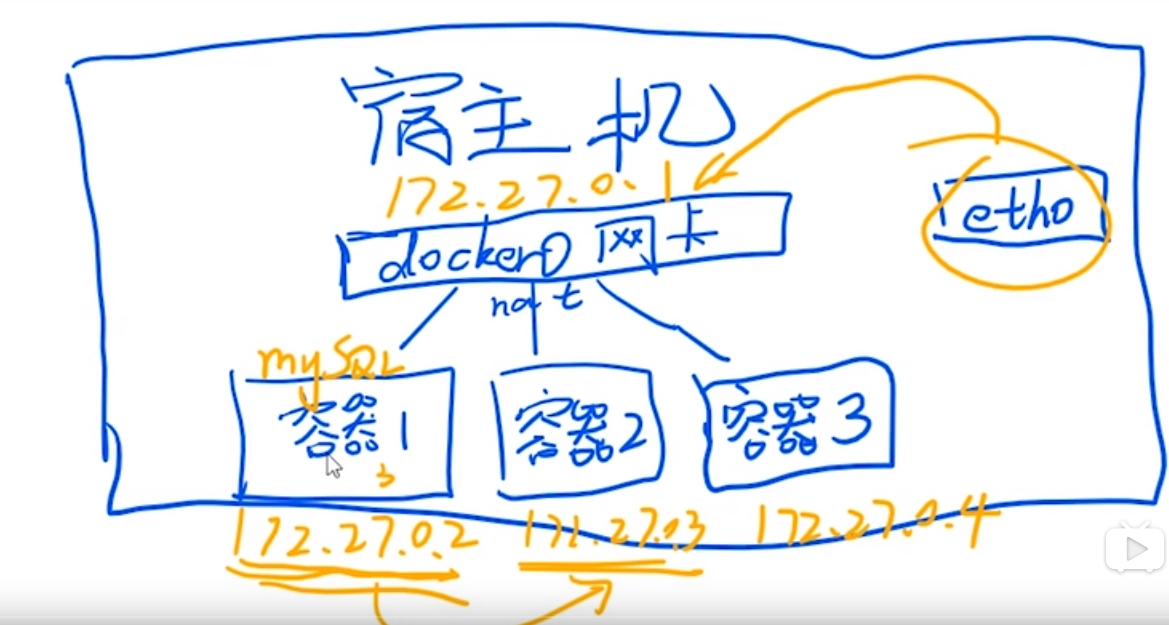 宿主机
172.27.0.1
docker0 网卡
eth0
nat
mySQL
容器1
容器2
容器3
172.27.0.2
172.27.0.3
172.27.0.4